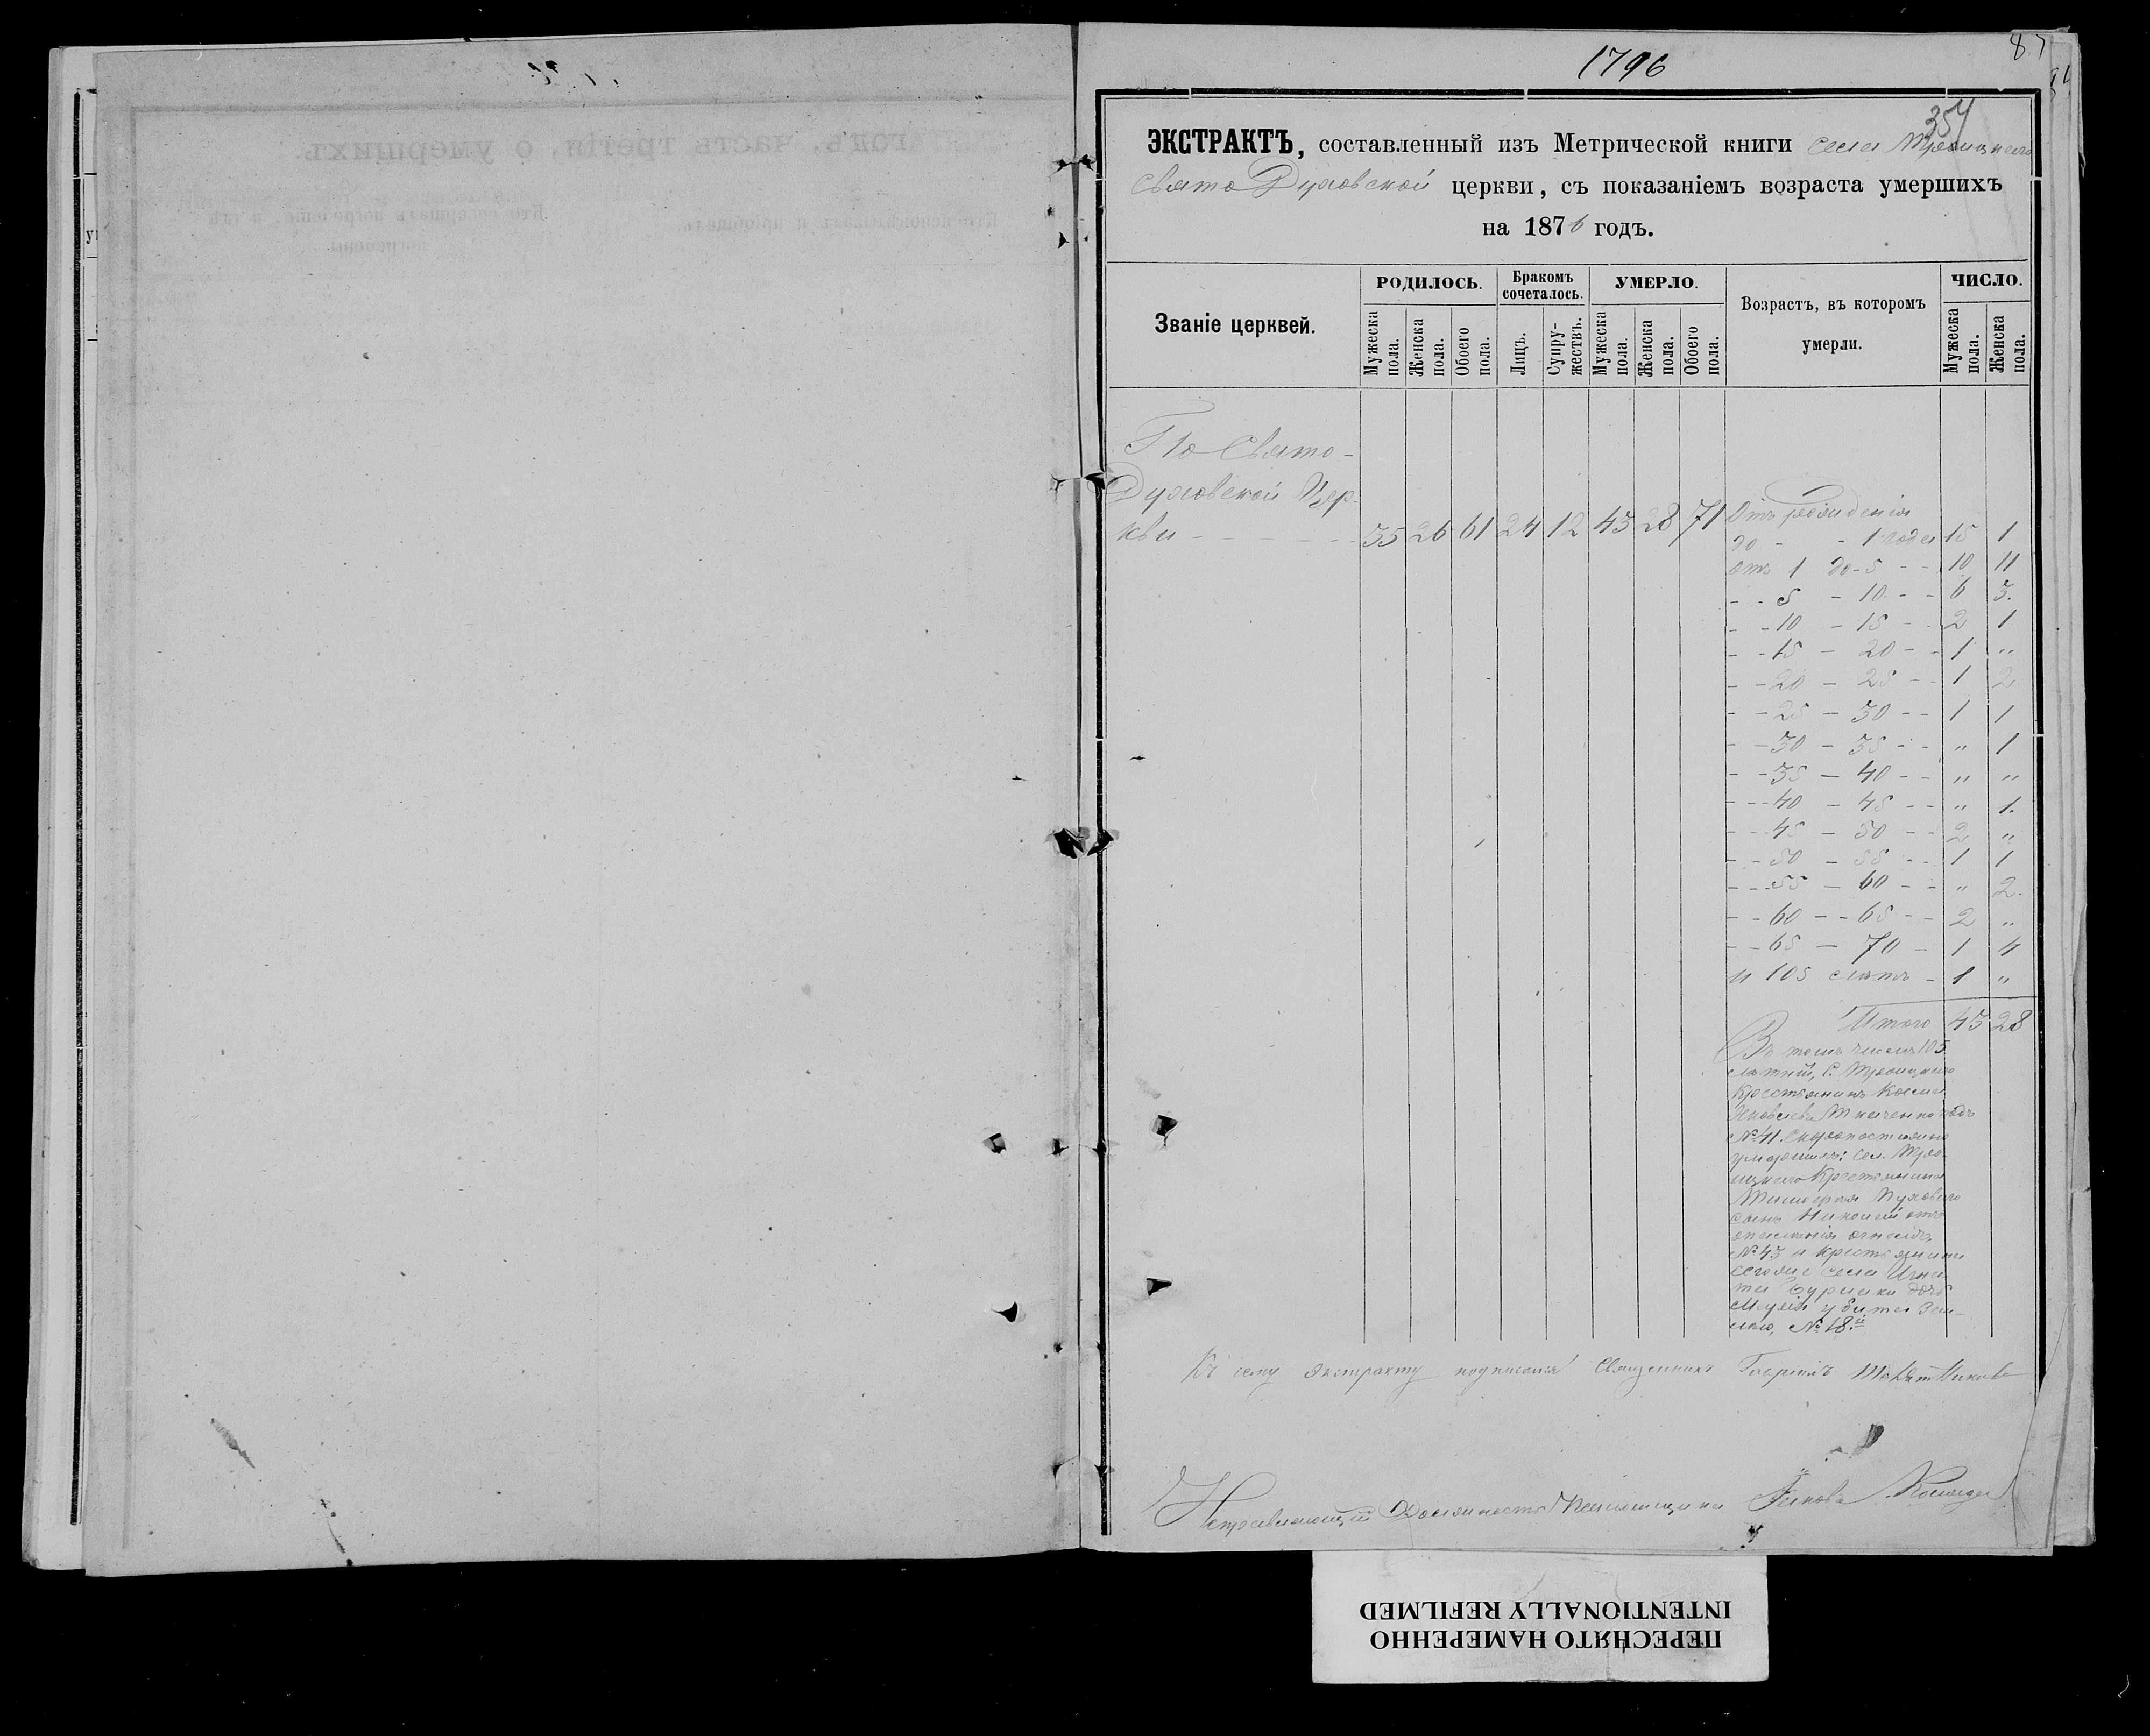 1796
87
354
ЭКСТРАКТЪ, составленный изъ Метрической книги села Троицкаго
Свято Духовской церкви, съ показаніемъ возраста умершихъ
на 1876 годъ.
Званіе церквей.
РОДИЛОСЬ.
Мужеска пола.
Женска пола.
Обоего пола.
Бракомъ сочеталось.
Лицъ.
Супружествъ.
УМЕРЛО.
Мужеска пола.
Женска пола.
Обоего пола.
Возрастъ, въ которомъ
умерли.
ЧИСЛО.
Мужеска пола.
Женска пола.
По Свято-
Духовской Цер-
кви - - - - - - 35 26 61 24 12 43 28 71
Отъ рожденія
до - - 1 года 15 1
отъ 1 до 5 - - 10 11
- - 5 - 10 - - 6 3.
- - 10 - 15 - - 2 1
- - 15 - 20 - - 1 "
- - 20 - 25 - - 1 2
- - 25 - 30 - - 1 1
- - 30 - 35 - - " 1
- - 35 - 40 - - " "
- - 40 - 45 - - " 1.
- - 45 - 50 - - 2 "
- - 50 - 55 - - 1 1
- - 55 - 60 - - " 2.
- - 60 - - 65 - - 2 "
- - 65 - 70 - 1 4
и 105 лѣтъ - 1 "
Итого 43 28
Въ томъ числѣ 105
лѣтній, С. Троицкаго
Крестьянинъ
Яковлевъ Ткаченко подъ
№ 41. Скоропостижно
умершихъ: сел. Трои-
цкаго Крестьянина
Тимофея
сынъ Николай отъ
№ 43 и крестьянина
села Игна-
та дочь
Марія убита зем-
лею, № 18.й
Къ сему экстракту подписался Священникъ
Исправляющій Должность Псаломщика Яковъ
ПЕРЕСНЯТО НАМЕРЕННО
INTENTIONALLY REFILMED